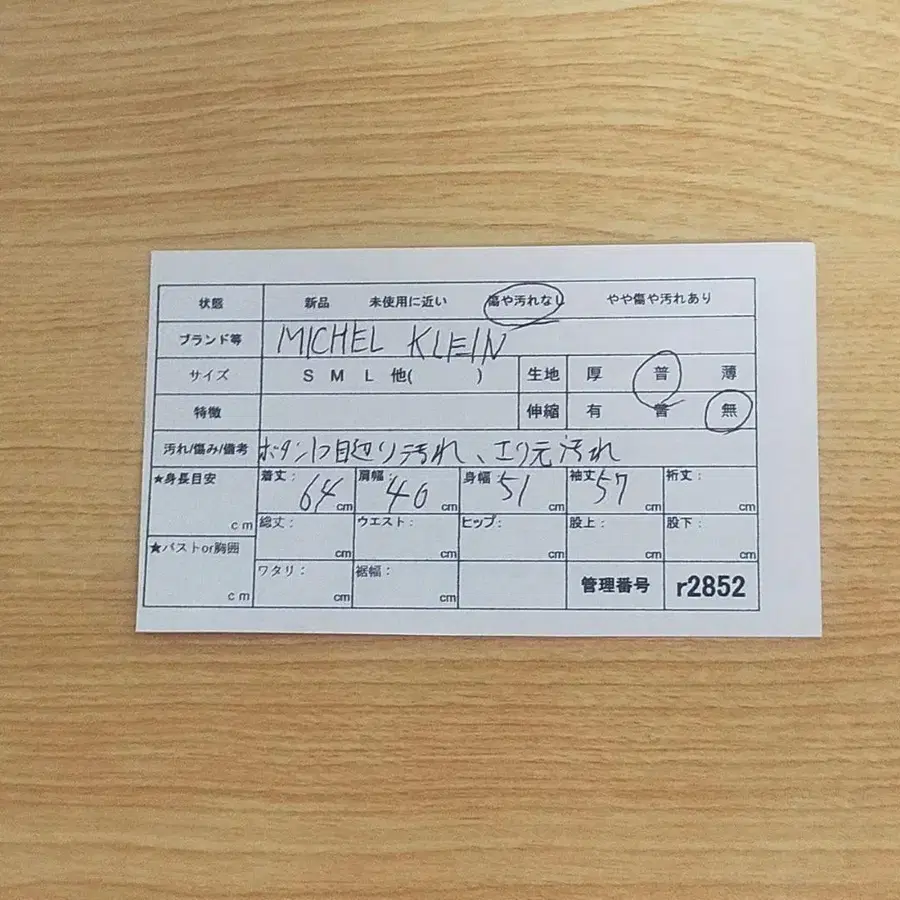 状態 新品 未使用に近い 傷や汚れなし やや傷や汚れあり
ブランド等 MICHEL KLEIN
サイズ S M L 他( ) 生地 厚 普 薄
特徴 伸縮 有 普 無
汚れ/傷み/備考 ボタン1つ目辺り汚れ、エリ元汚れ
★身長目安 cm 着丈: 64 cm 肩幅: 40 cm 身幅: 51 cm 袖丈: 57 cm 裄丈: cm
総丈: cm ウエスト: cm ヒップ: cm 股上: cm 股下: cm
★バストor胸囲 cm ワタリ: cm 裾幅: cm 管理番号 r2852